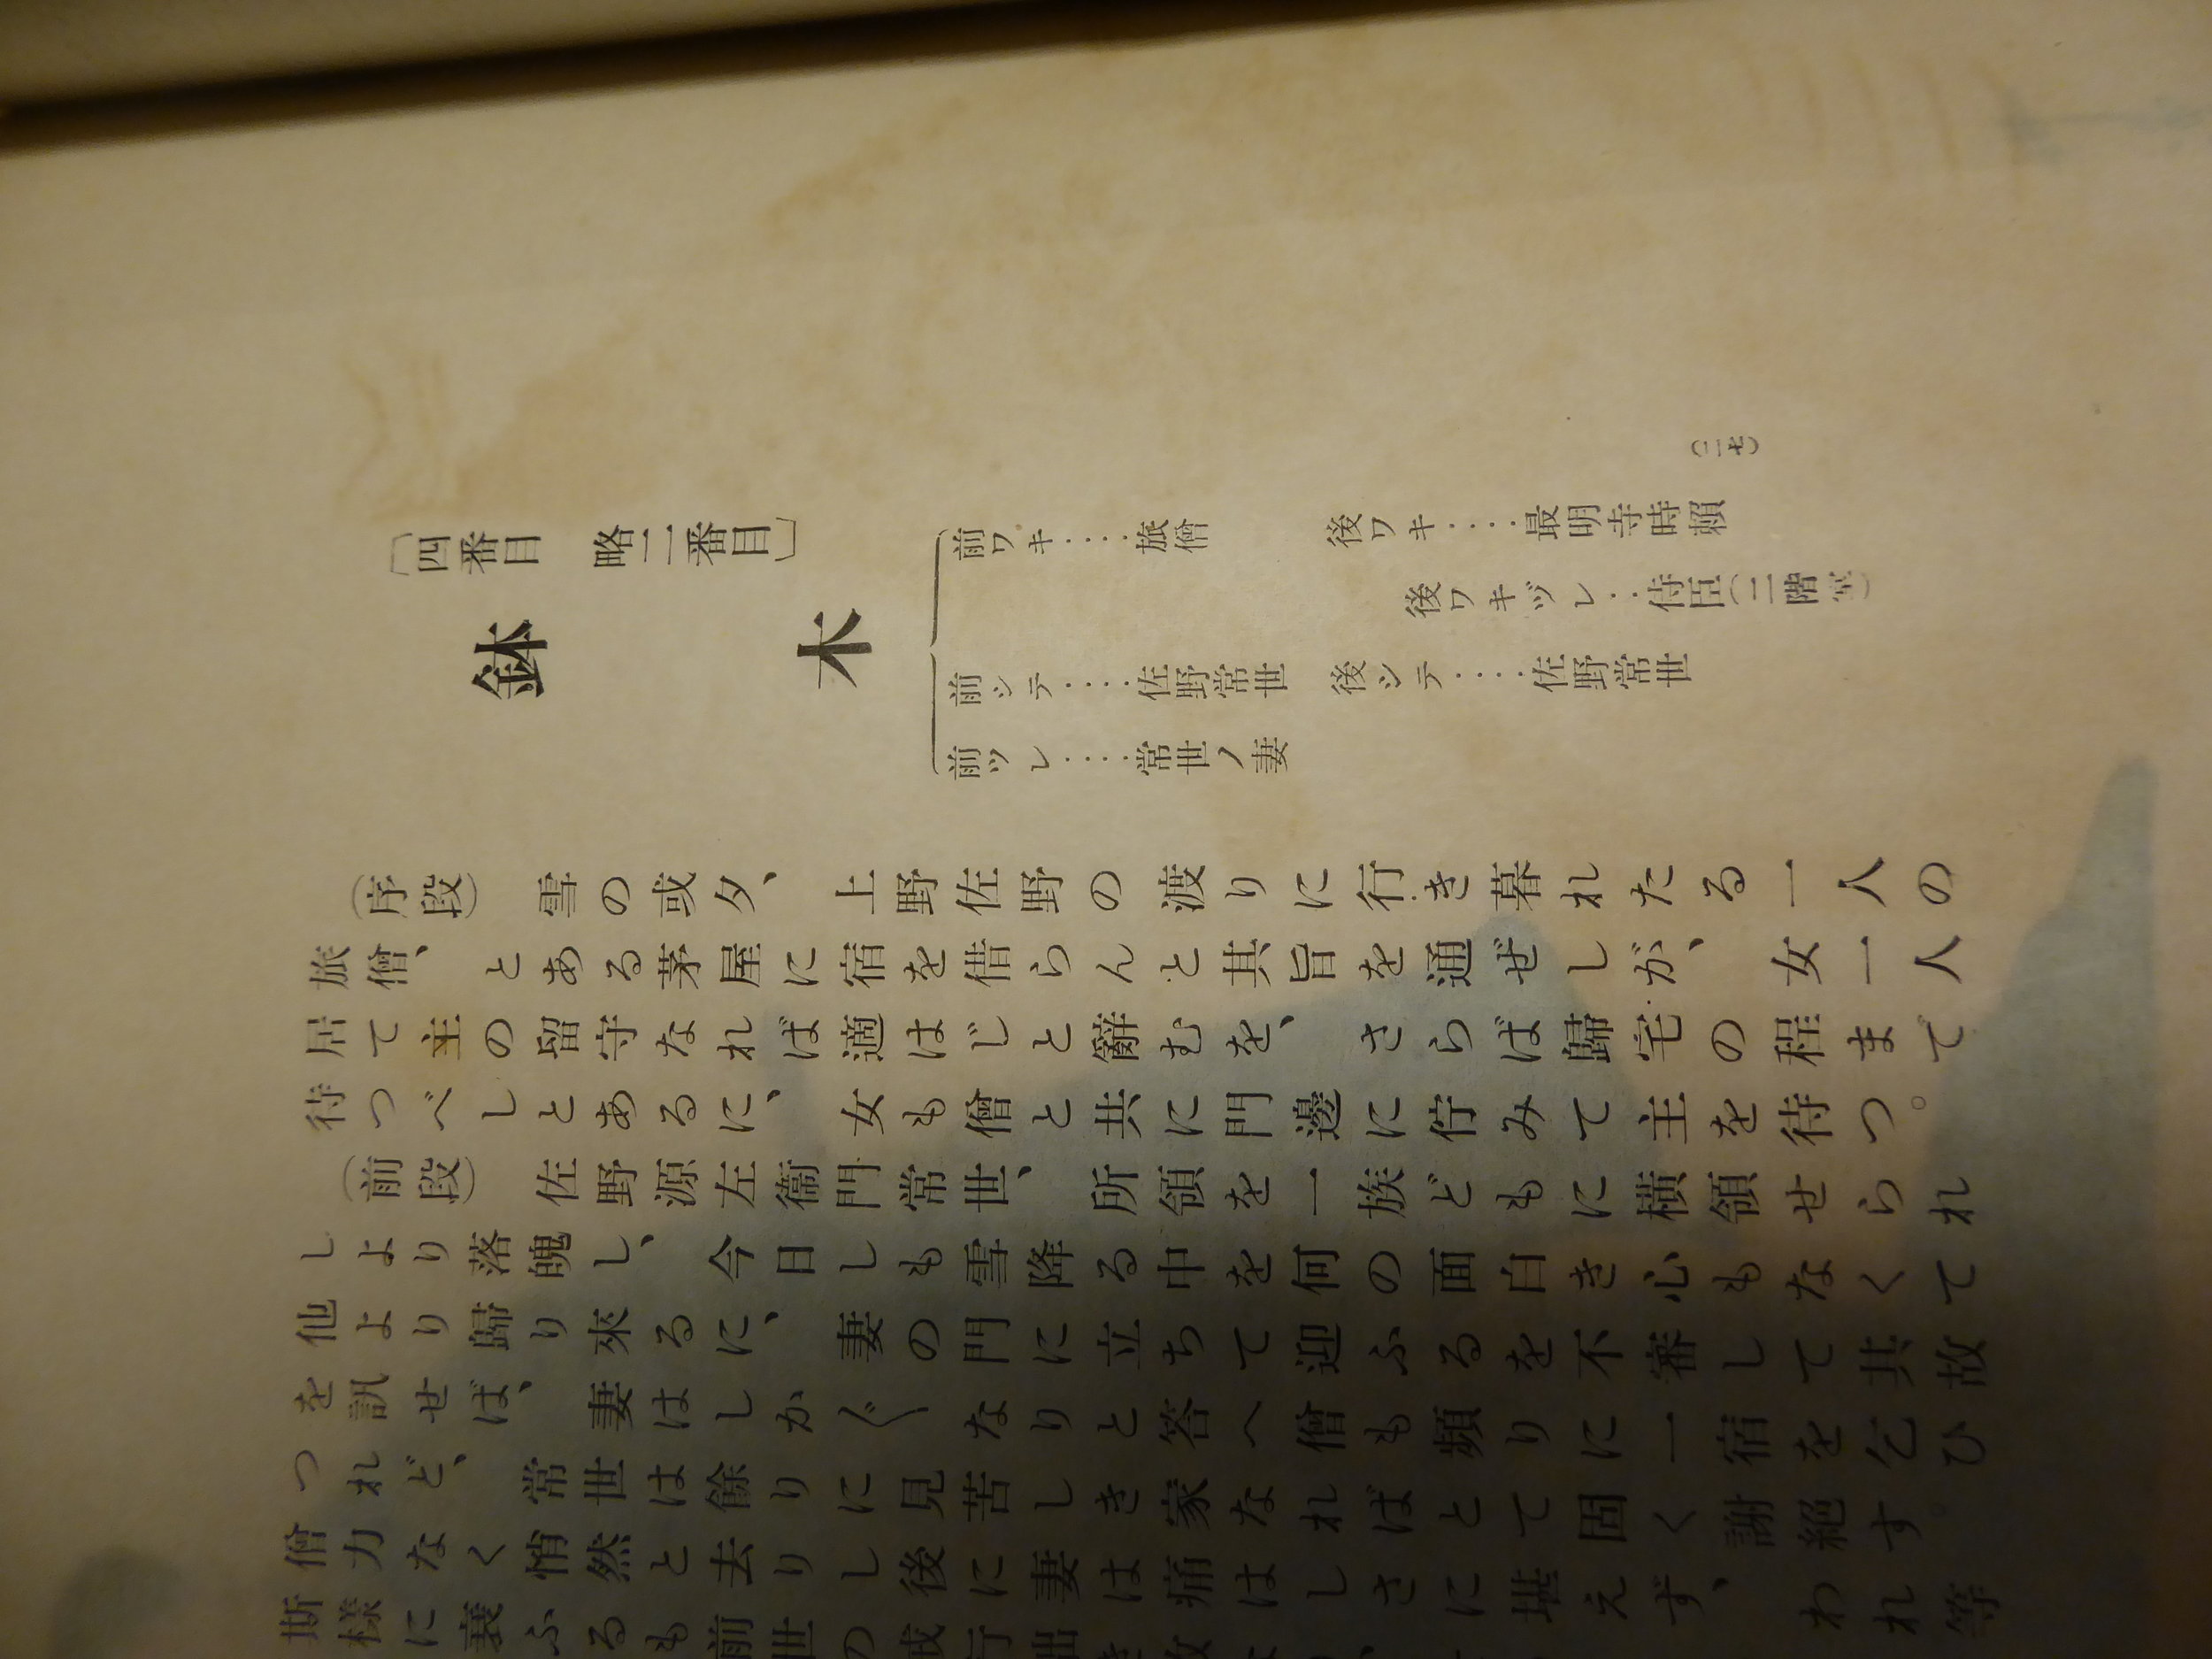 〔四番目 略二番目〕
鉢木
前ワキ‥‥旅僧 後ワキ‥‥最明寺時賴
後ワキヅレ‥侍臣(二階堂)
前シテ‥‥佐野常世 後シテ‥‥佐野常世
前ツレ‥‥常世ノ妻
(序段) 雪の或夕、上野佐野の渡りに行き暮れたる一人の
旅僧、とある茅屋に宿を借らんと其旨を通ぜしが、女一人
居て主の留守なれば適はじと辭むを、さらば歸宅の程まで
待つべしとあるに、女も僧と共に門邊に佇みて主を待つ。
(前段) 佐野源左衞門常世、所領を一族どもに横領せられ
しより落魄し、今日しも雪降る中を何の面白き心もなくて
他より歸り來るに、妻の門に立ちて迎ふるを不審して其故
を訊せば、妻はしか〴〵なりと答へ僧も頻りに一宿を乞ひ
つれど、常世は餘りに見苦しき家なればとて固く謝絕す。
僧力なく悄然と去りし後に妻は痛はしさに堪えず、われ等
斯樣に衰ふるも前世の戒行